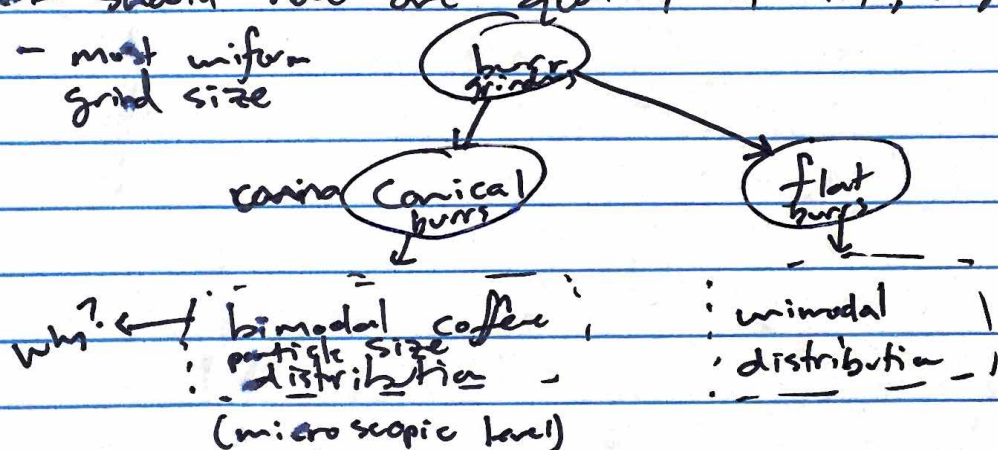 should
- most uniform
grind size
burr
grinders
Conical
burrs
flat
burrs
why?
bimodal coffee
particle size
distribution
(microscopic level)
unimodal
distribution